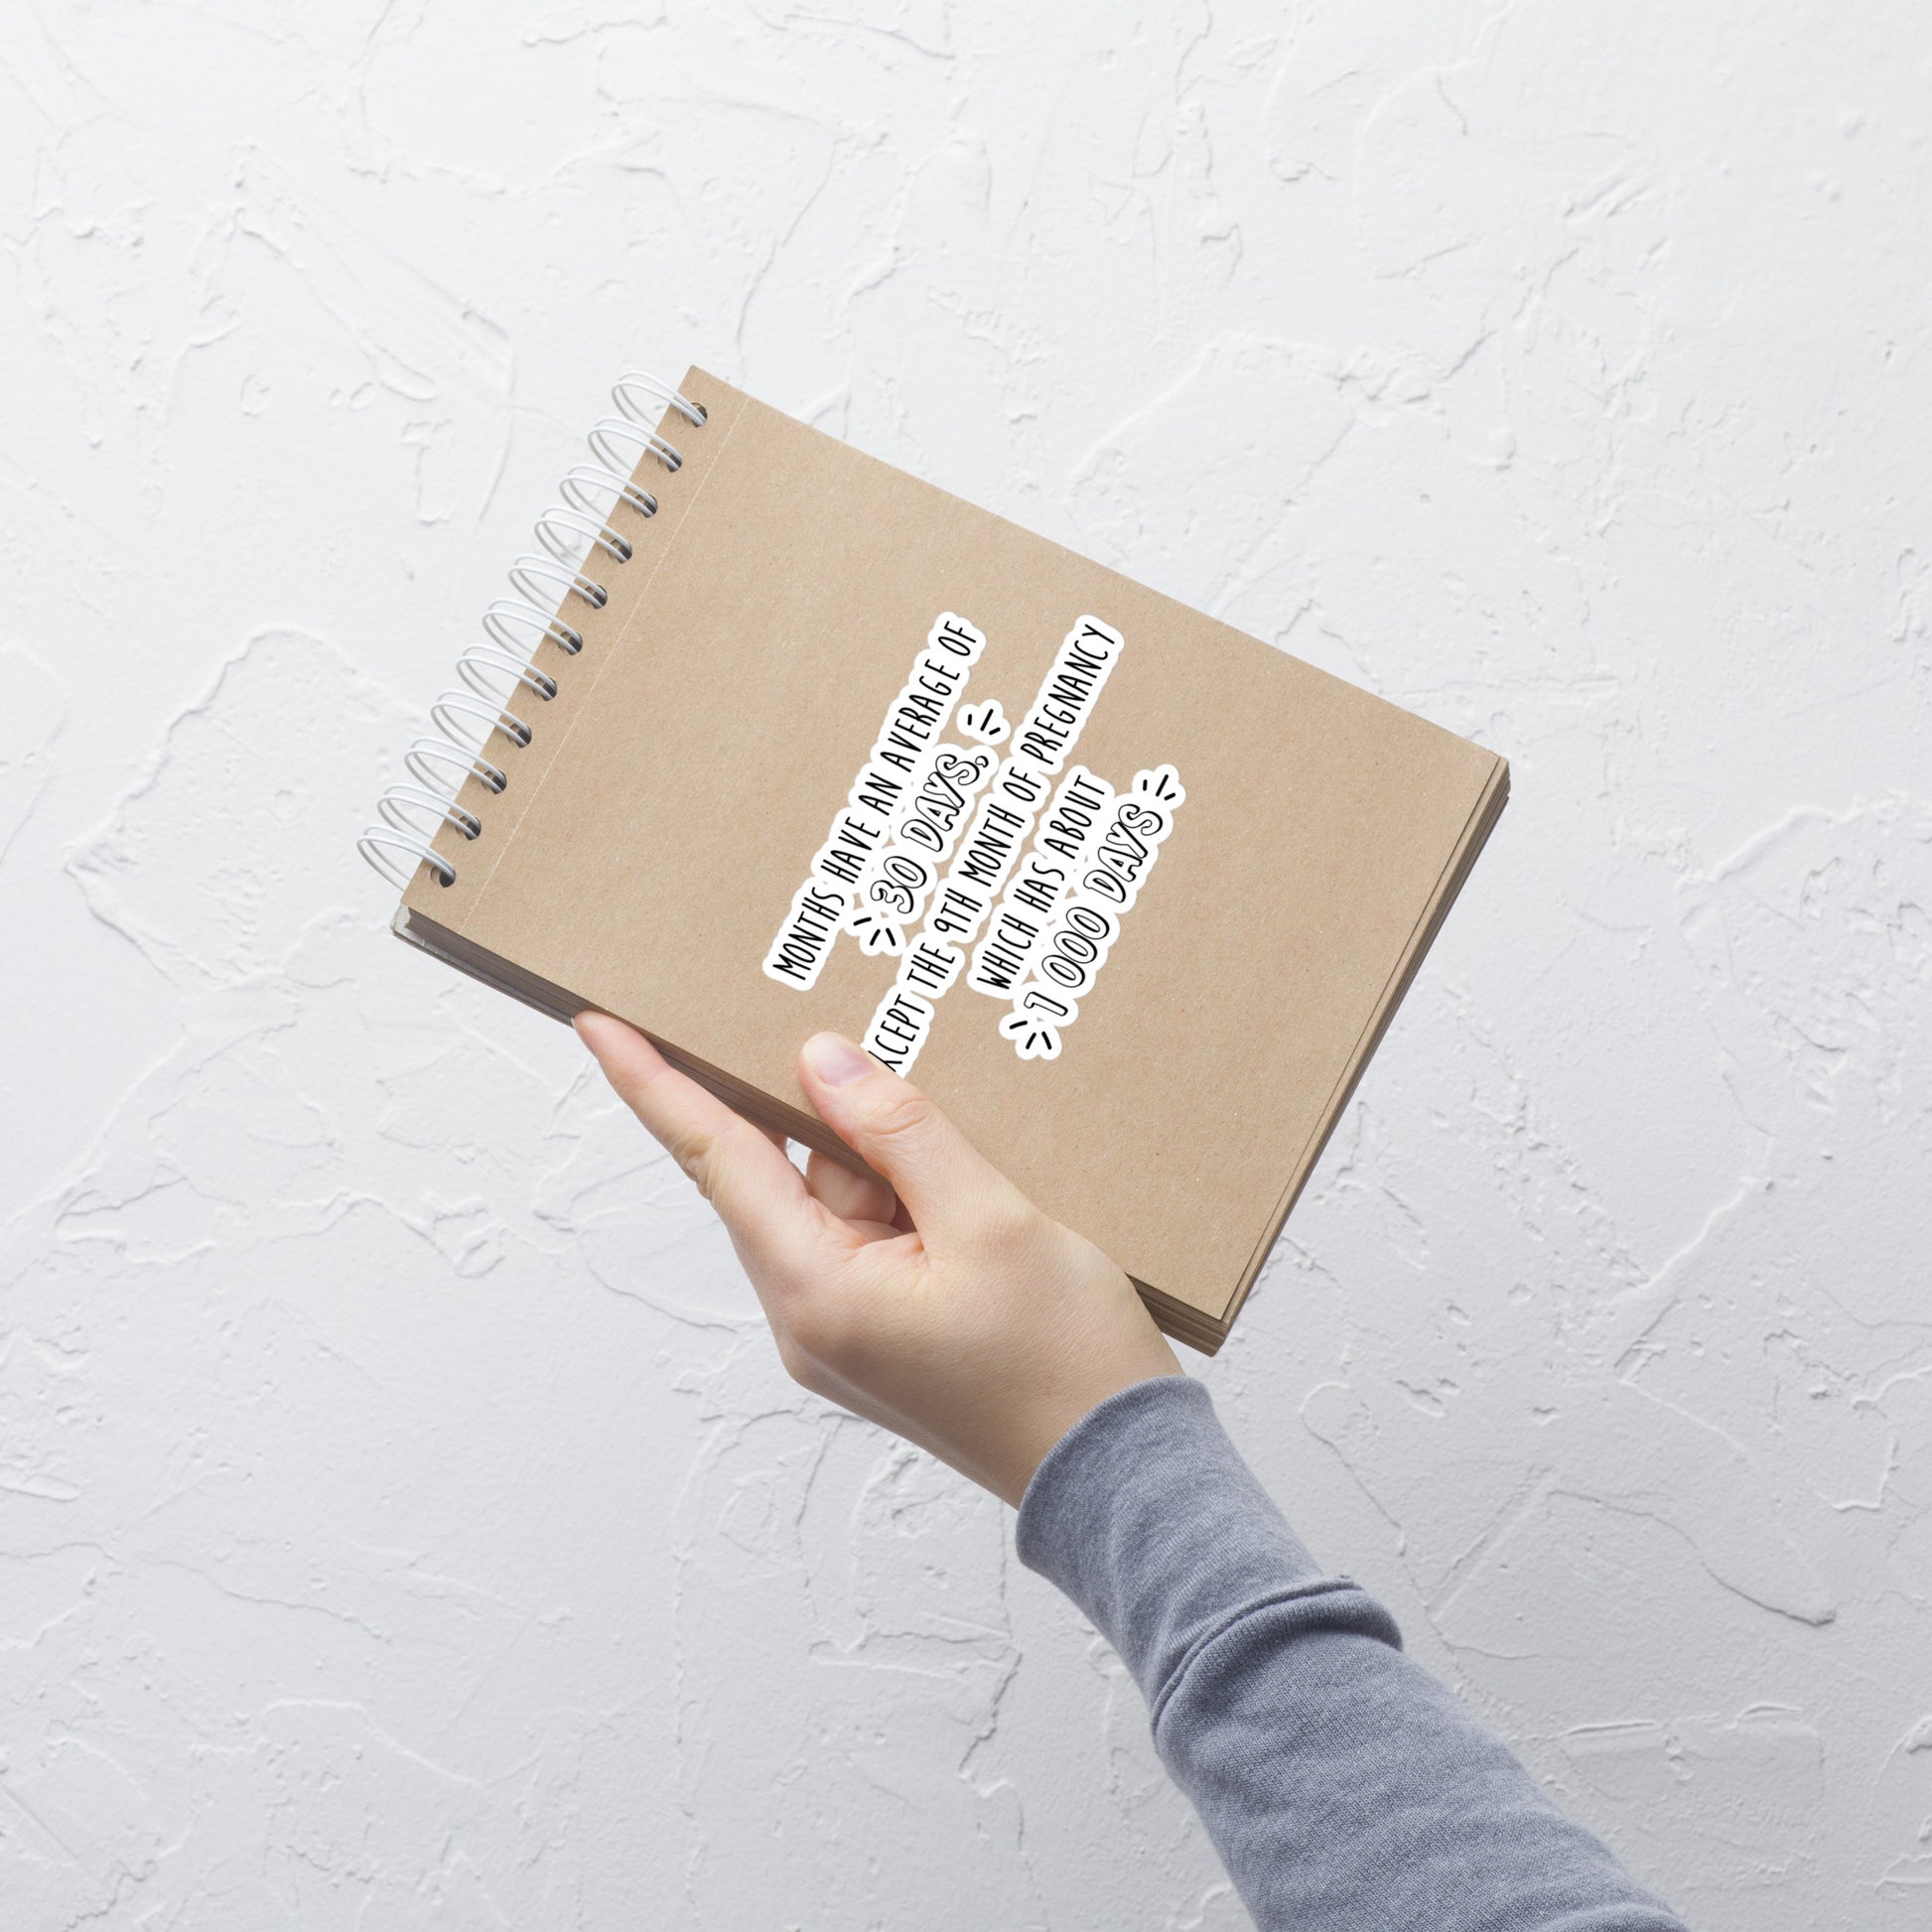 MONTHS HAVE AN AVERAGE OF
30 DAYS,
XCEPT THE 9TH MONTH OF PREGNANCY
WHICH HAS ABOUT
1 000 DAYS